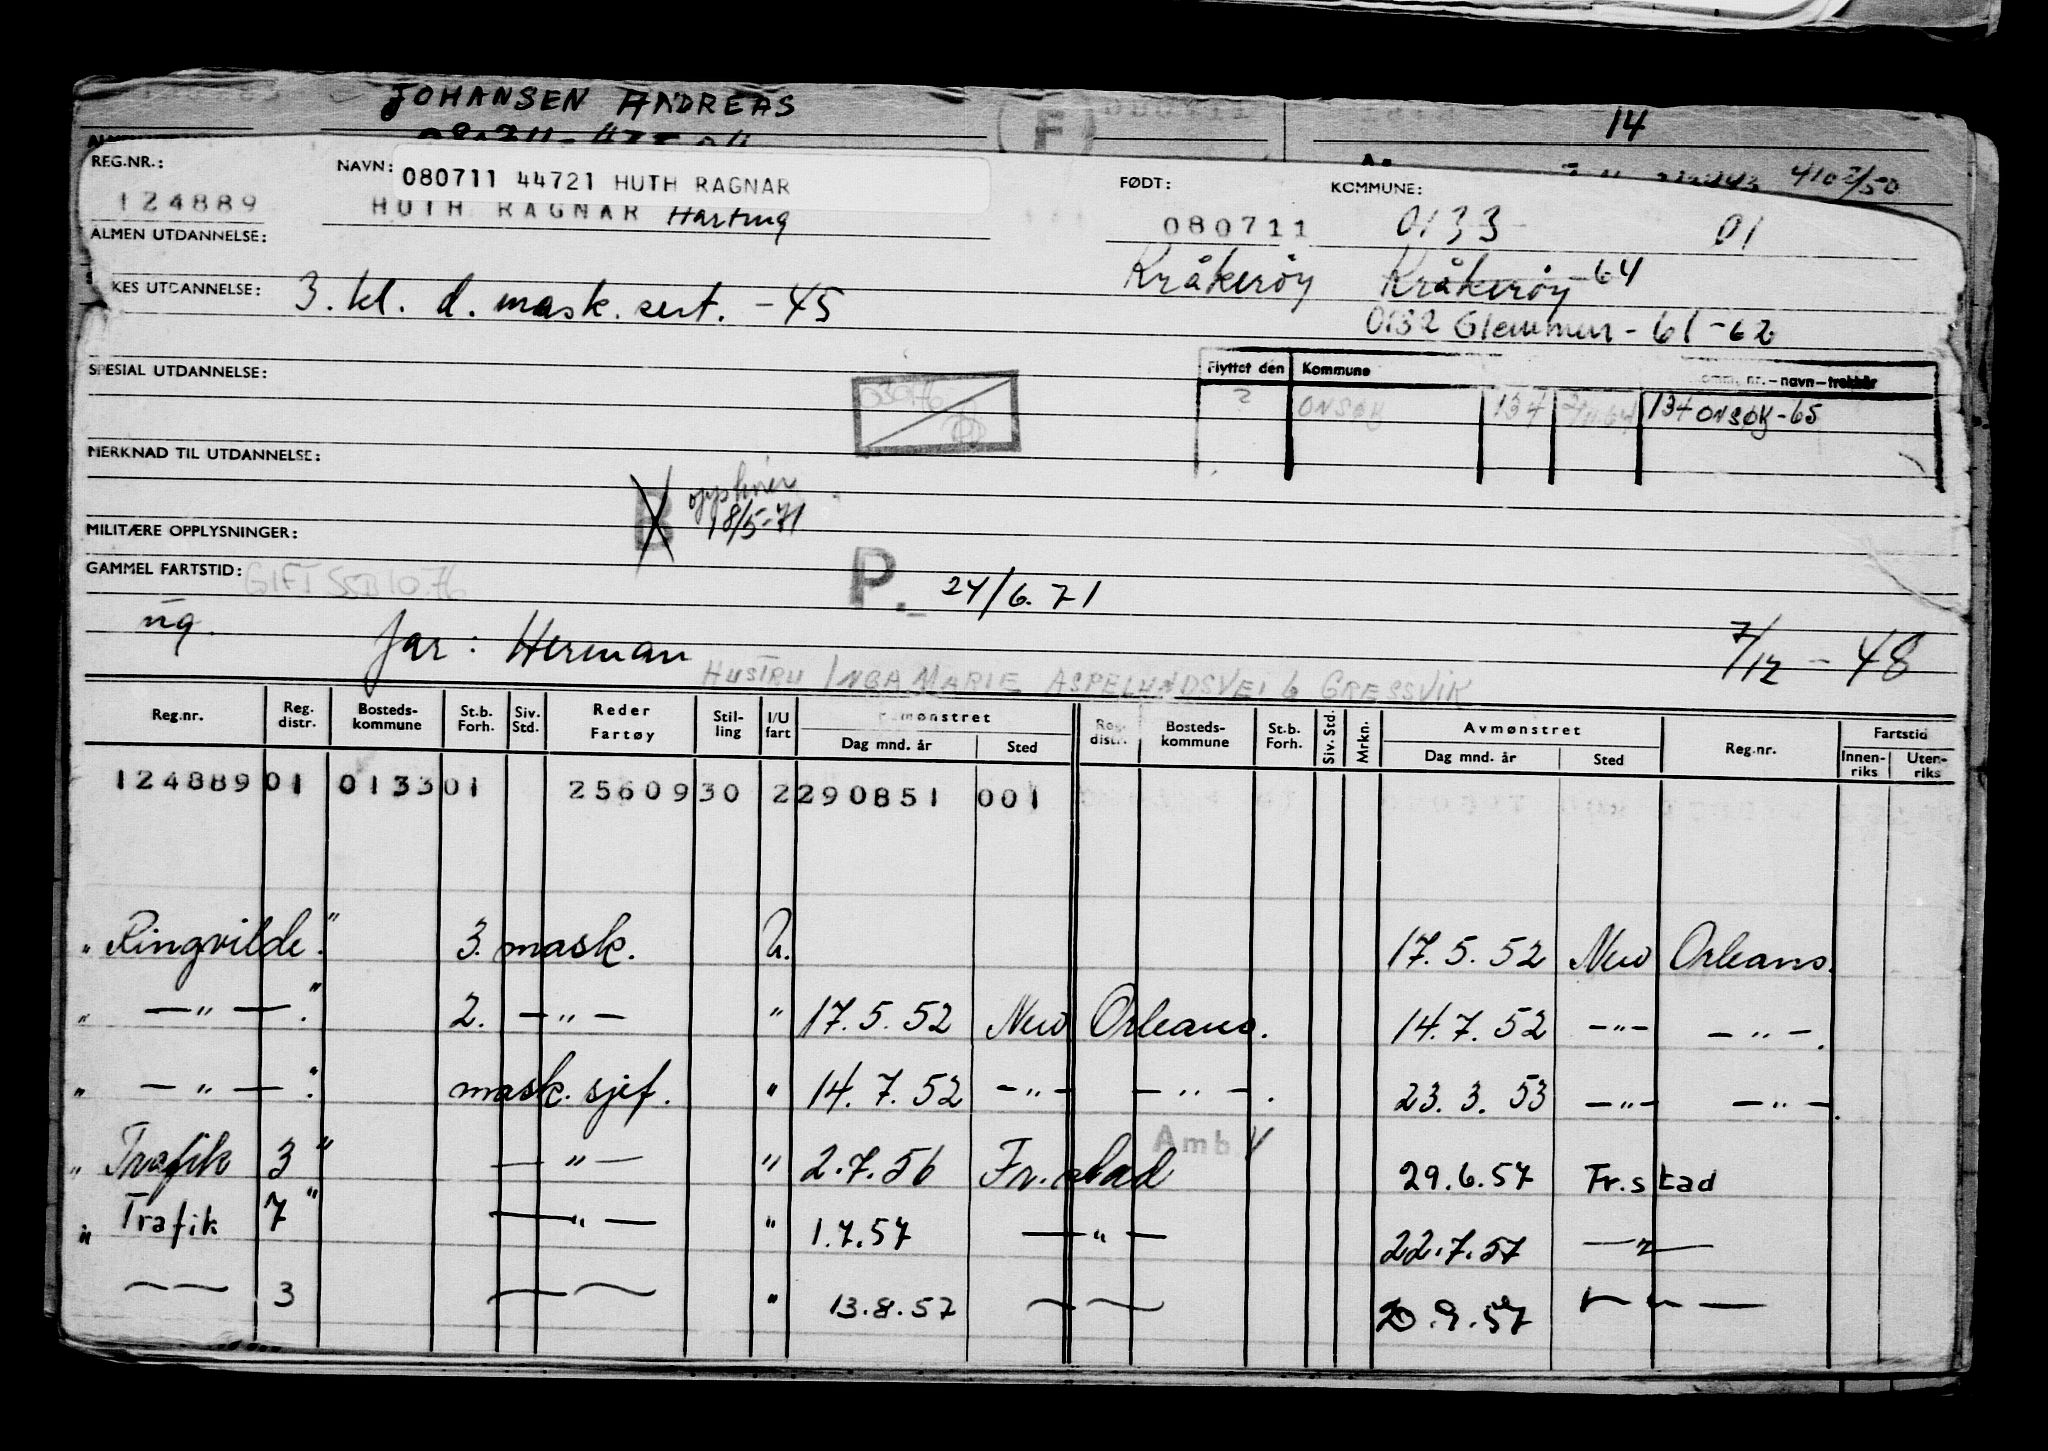 JOHANSEN ANDREAS
(F)
14
410 2/50
REG.NR.: NAVN: 080711 44721 HUTH RAGNAR FØDT: KOMMUNE:
124889 HUTH RAGNAR Harting 080711 0133 01
ALMEN UTDANNELSE: Kråkerøy Kråkerøy 64
KES UTDANNELSE: 3. kl. d. mask. sert. - 45
0132 Glemmen - 61-62
SPESIAL UTDANNELSE:
Flyttet den Kommune nr. - navn - trekkår
2 ONSØY 134 134 ONSØY - 65
MERKNAD TIL UTDANNELSE:
B 18/5-71
MILITÆRE OPPLYSNINGER:
GAMMEL FARTSTID: GIFT
P. 24/6.71
ug. far: Herman 7/12 - 48
HUSTRU INGA MARIE ASPELUNDSVEI 6 GRESSVIK
Reg.nr. Reg. distr. Bosteds-kommune St.b. Forh. Siv. Std. Reder Fartøy Stil-ling I/U fart mønstret Dag mnd. år Sted Reg. distr. Bosteds-kommune St.b. Forh. Siv. Std. Mrkn. Avmønstret Dag mnd. år Sted Reg.nr. Fartstid Innen-riks Uten-riks
124889 01 0133 01 2560930 2 290851 001
" Ringvilde." 3. mask. U. 17.5.52 New Orleans.
" — " — ." 2. — " — " 17.5.52 New Orleans. 14.7.52 — " — — " — .
" — " — ." mask. sjef. " 14.7.52 — " — — " — . 23.3.53 — " — — " — .
Amb
" Trafik 3 " — " — " 2.7.56 Fr.stad 29.6.57 Fr.stad
" Trafik 7 " — " — " 1.7.57 — " — 22.7.57 — " —
— — 3 — — " 13.8.57 — — 20.9.57 — " —